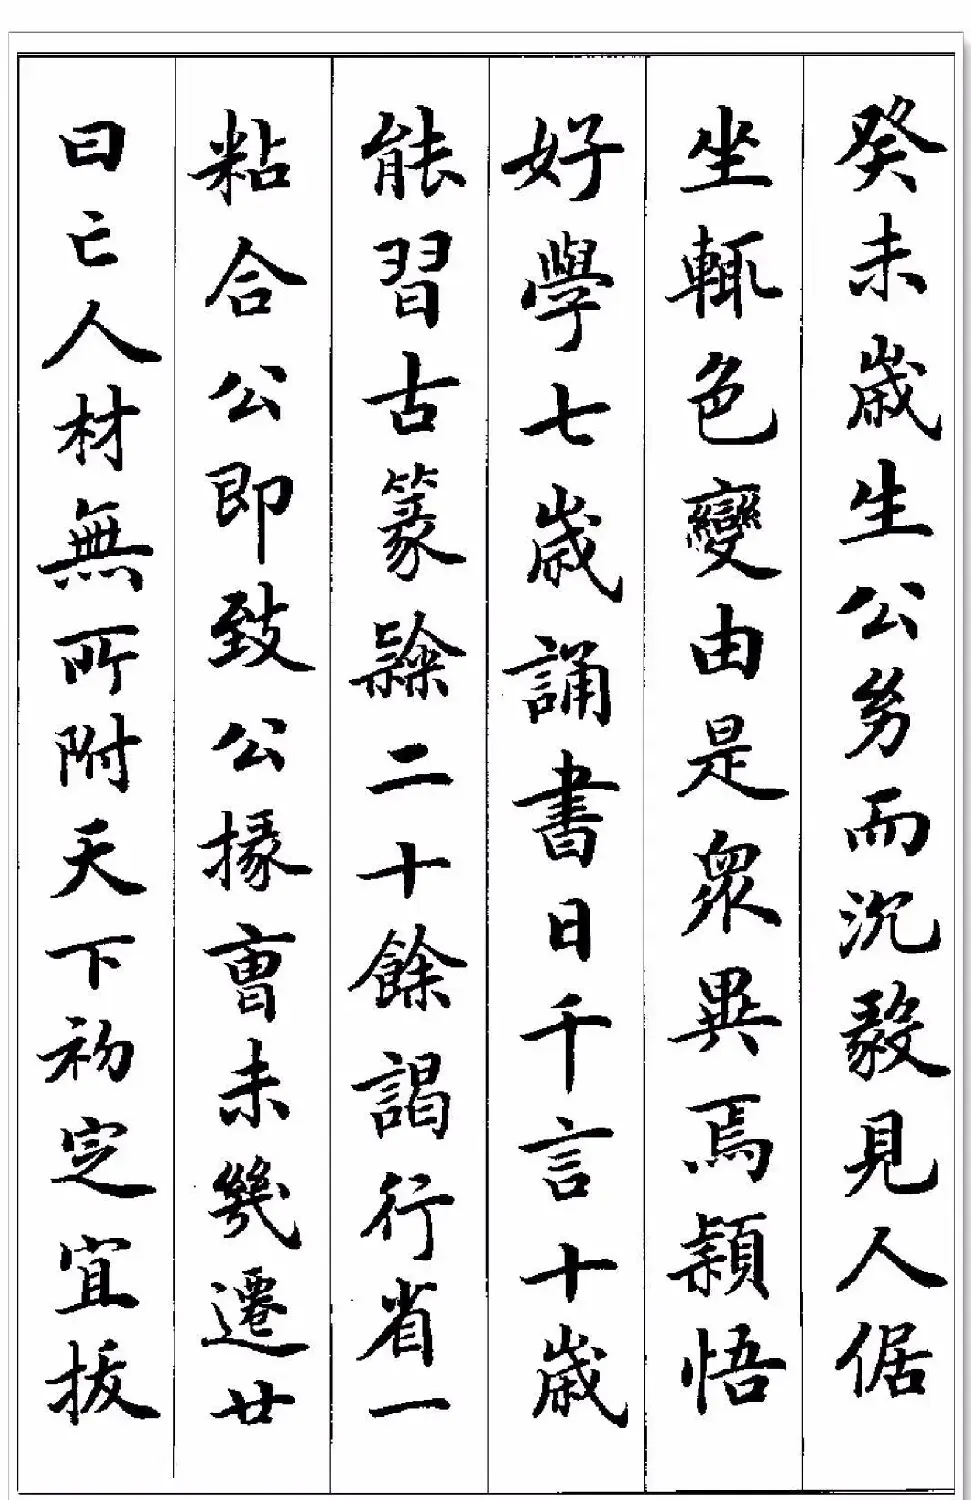 癸未歲生公㓜而沉毅見人倨
坐輒色變由是衆異焉頴悟
好學七歲誦書日千言十歲
能習古篆𨽻二十餘謁行省一
粘合公即致公掾曺未幾遷廿
曰亡人材無所附天下初定宜拔